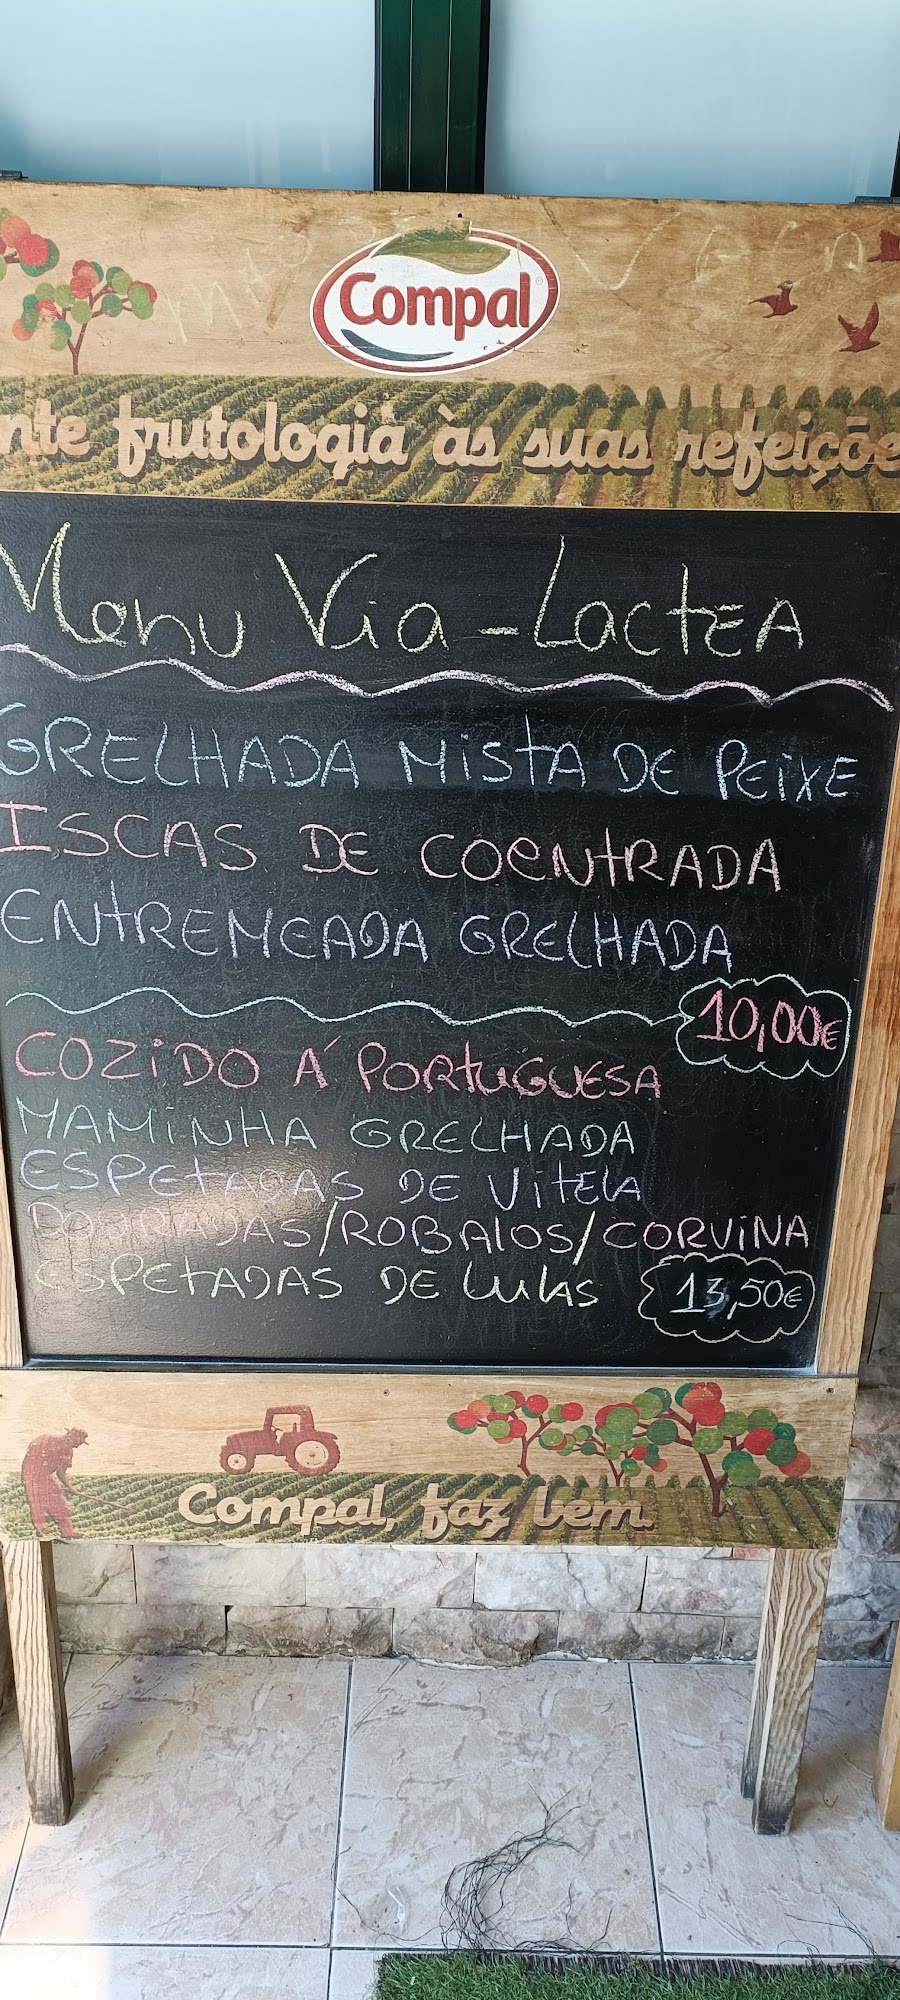 Compal
nte frutologia às suas refeiçõe
Menu Via-LactEA
GRELHADA MistA DE PEIXE
ISCAS DE COENTRADA
ENTREMEADA GRELHADA
10,00€
COZIDO Á PORTUGUESA
MAMINHA GRELHADA
ESPETADAS DE VITELA
DOURADAS/ROBALOS/CORVINA
ESPETADAS DE LULAS
13,50€
Compal, faz bem